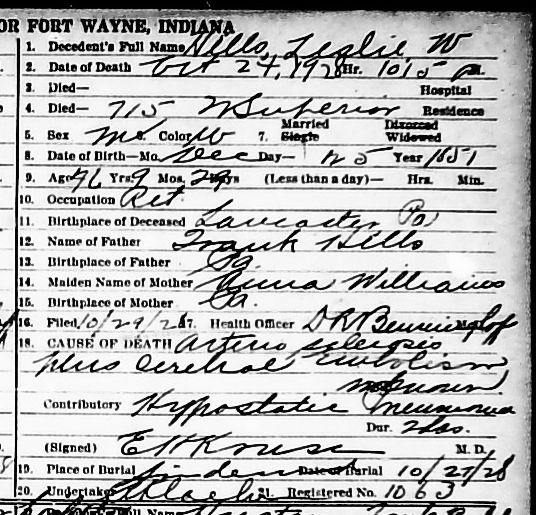 OR FORT WAYNE, INDIANA
1. Decedent's Full Name Hills, Leslie W
2. Date of Death Oct 24, 1928 Hr. 1015 P M.
3. Died— Hospital
4. Died— 715 W Superior Residence
Married Divorced
5. Sex Me. Color W 7. Single Widowed
8. Date of Birth—Mo. Dec Day— 25 Year 1851
9. Age 76 Yrs. 9 Mos. 29 Days (Less than a day)— Hrs. Min.
10. Occupation Ret
11. Birthplace of Deceased Lancaster Pa
12. Name of Father Frank Hills
13. Birthplace of Father Pa
14. Maiden Name of Mother Anna Williams
15. Birthplace of Mother Pa.
16. Filed 10/29/28 17. Health Officer D R Benninghof
18. CAUSE OF DEATH Arterio sclerosis
plus cerebral Embolism
unknown
Contributory Hypostatic Pneumonia
Dur. 2 das.
(Signed) E H Kruse M. D.
19. Place of Burial Lindenwood Date of Burial 10/27/28
20. Undertaker 21. Registered No. 1063